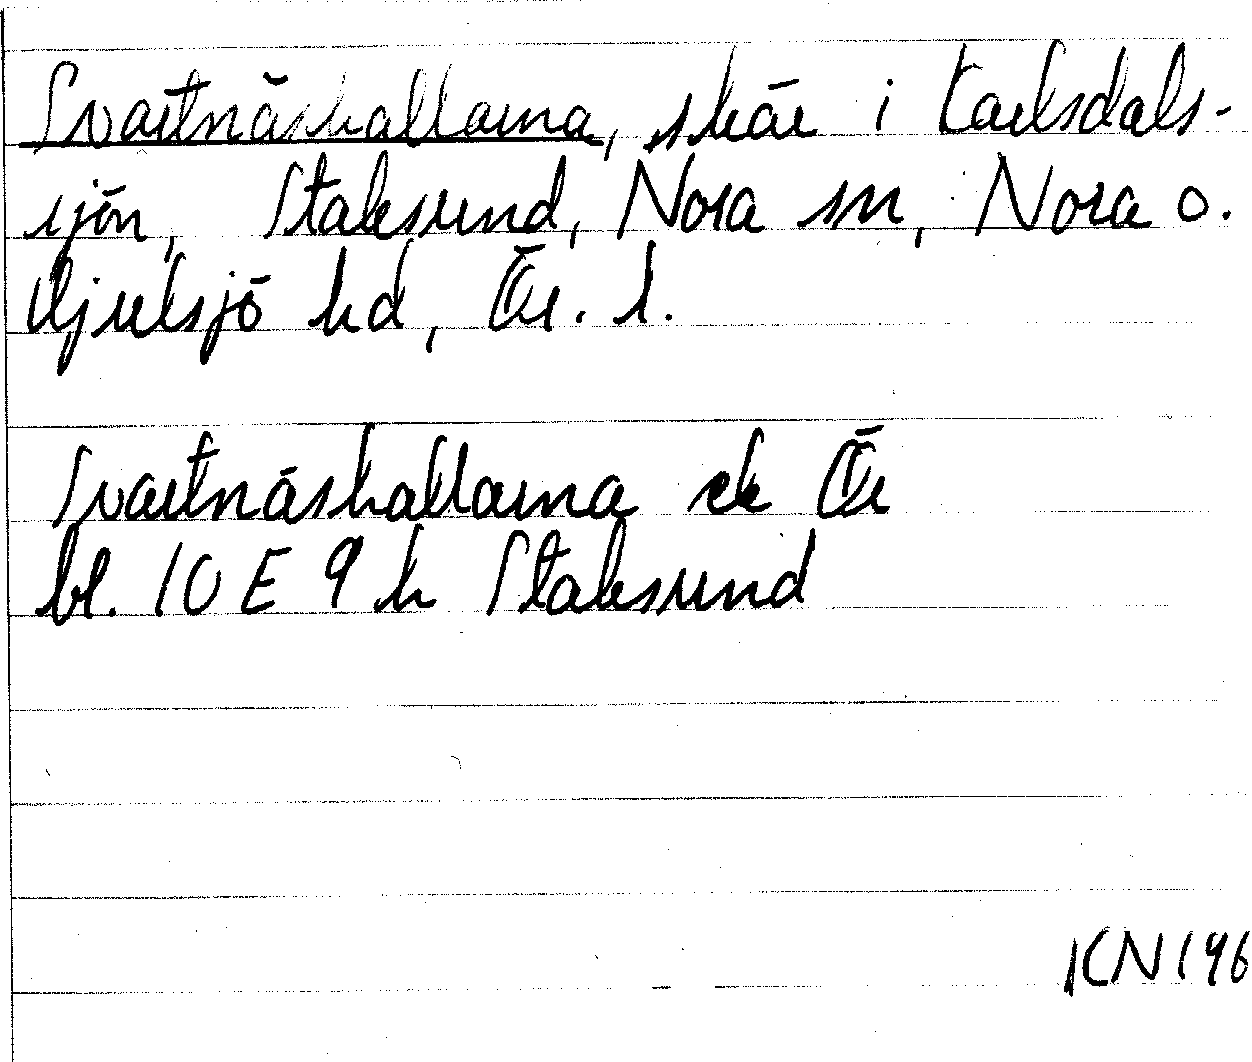 Svartnäshallarna, skär i Karlsdals-
sjön, Staksund, Nora sn, Nora o.
Hjulsjö hd, Ör. l.
Svartnäshallarna ek Ör
bl. 10 E 9 h Staksund
KN 196